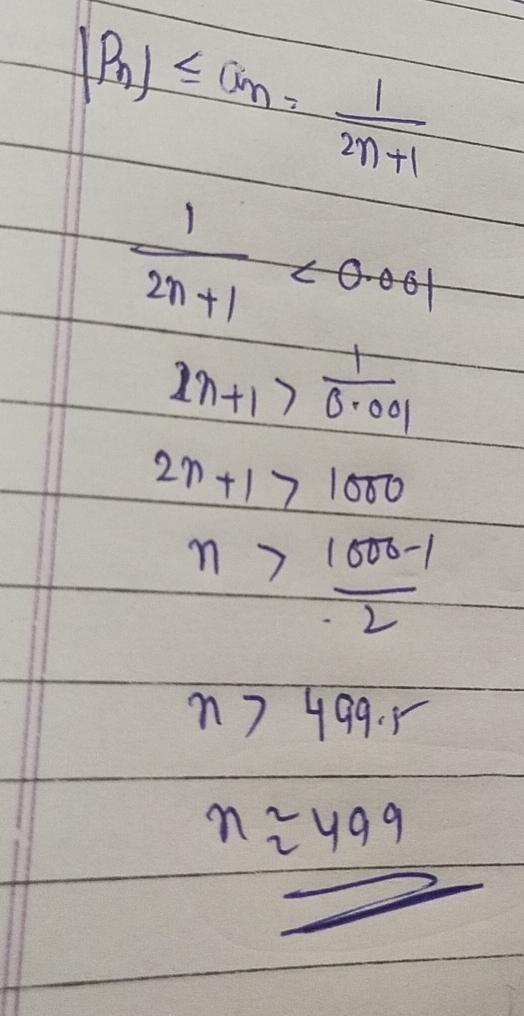 |Pn| ≤ an = 1/(2n+1)
1/(2n+1) < 0.001
2n+1 > 1/0.001
2n+1 > 1000
n > (1000-1)/2
n > 499.5
n ≈ 499